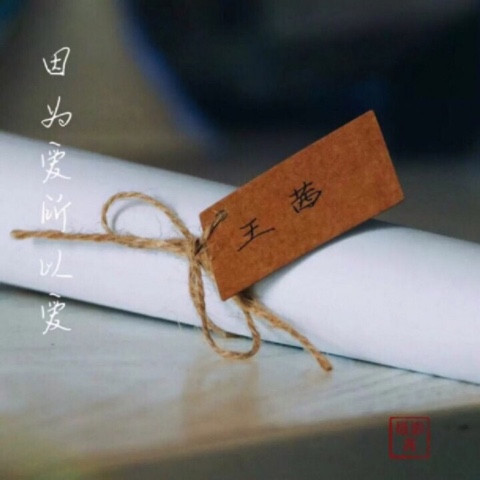 因为爱所以爱
王茜